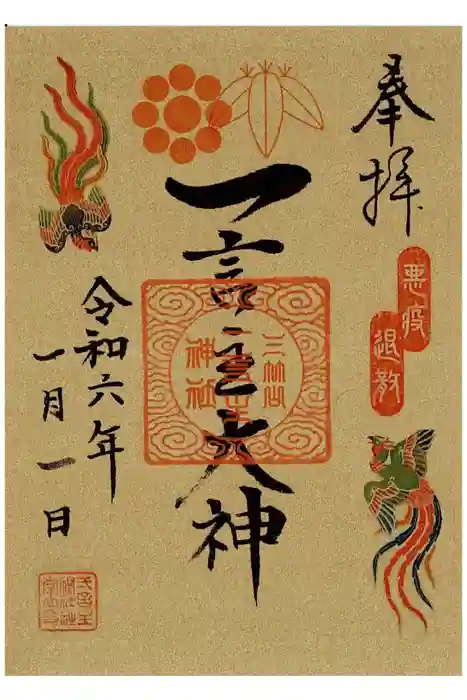 奉拝
悪疫
退散
一言主大神
三竹
一言主
神社
令和六年
一月一日